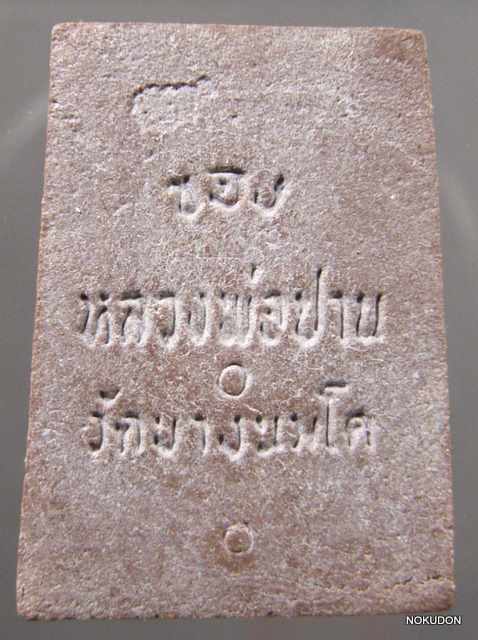 ของ
หลวงพ่อปาน
วัดบางนมโค
NOKUDON